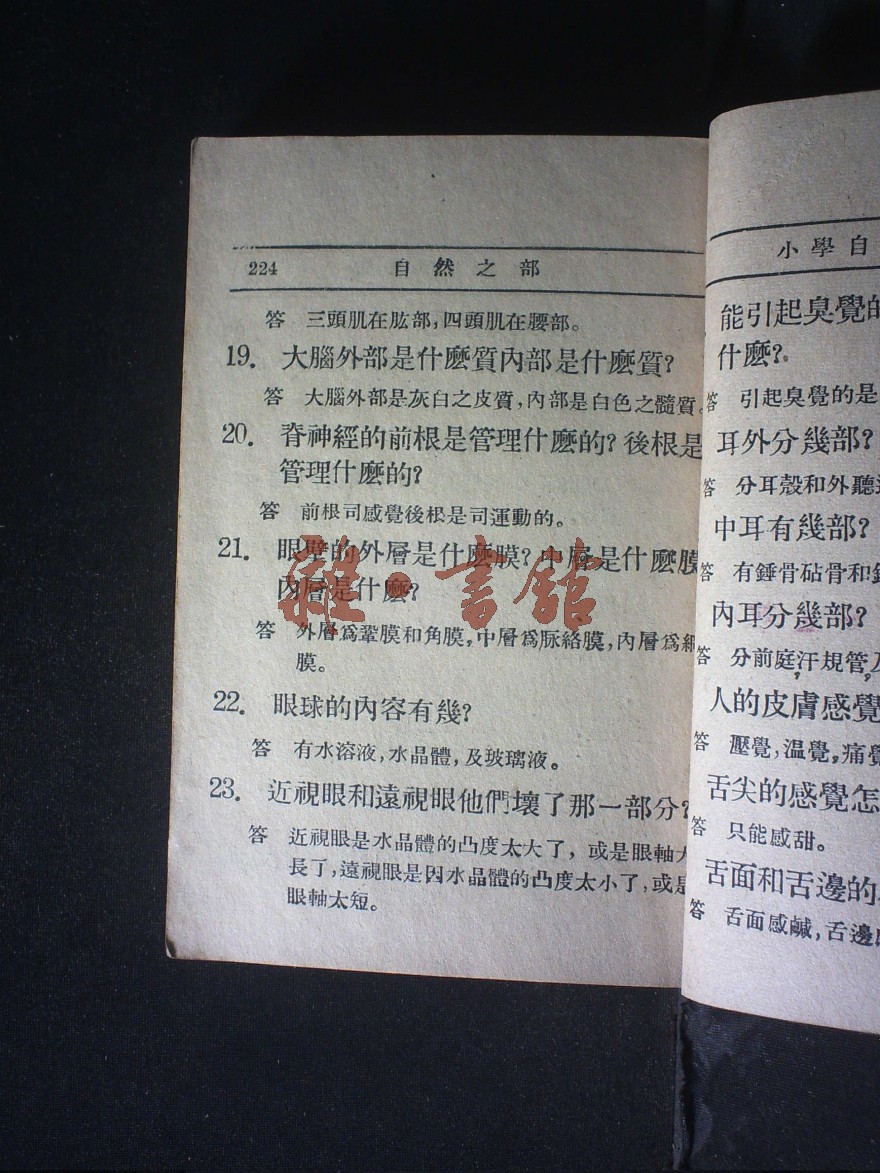 224 自然之部
答 三頭肌在肱部,四頭肌在腰部。
19. 大腦外部是什麽質內部是什麽質?
答 大腦外部是灰白之皮質,內部是白色之髓質。
20. 脊神經的前根是管理什麽的?後根是
管理什麽的?
答 前根司感覺後根是司運動的。
21. 眼壁的外層是什麽膜?中層是什麽膜
內層是什麽?
答 外層爲鞏膜和角膜,中層爲脈絡膜,內層爲網
膜。
22. 眼球的內容有幾?
答 有水溶液,水晶體,及玻璃液。
23. 近視眼和遠視眼他們壞了那一部分?
答 近視眼是水晶體的凸度太大了,或是眼軸太
長了,遠視眼是因水晶體的凸度太小了,或是
眼軸太短。
小學自
能引起臭覺的
什麽?
答 引起臭覺的是
耳外分幾部?
答 分耳殼和外聽道
中耳有幾部?
答 有錘骨砧骨和
內耳分幾部?
答 分前庭,汗規管,及
人的皮膚感覺
答 壓覺,温覺,痛覺
舌尖的感覺怎
答 只能感甜。
舌面和舌邊的
答 舌面感鹹,舌邊
雜·書館